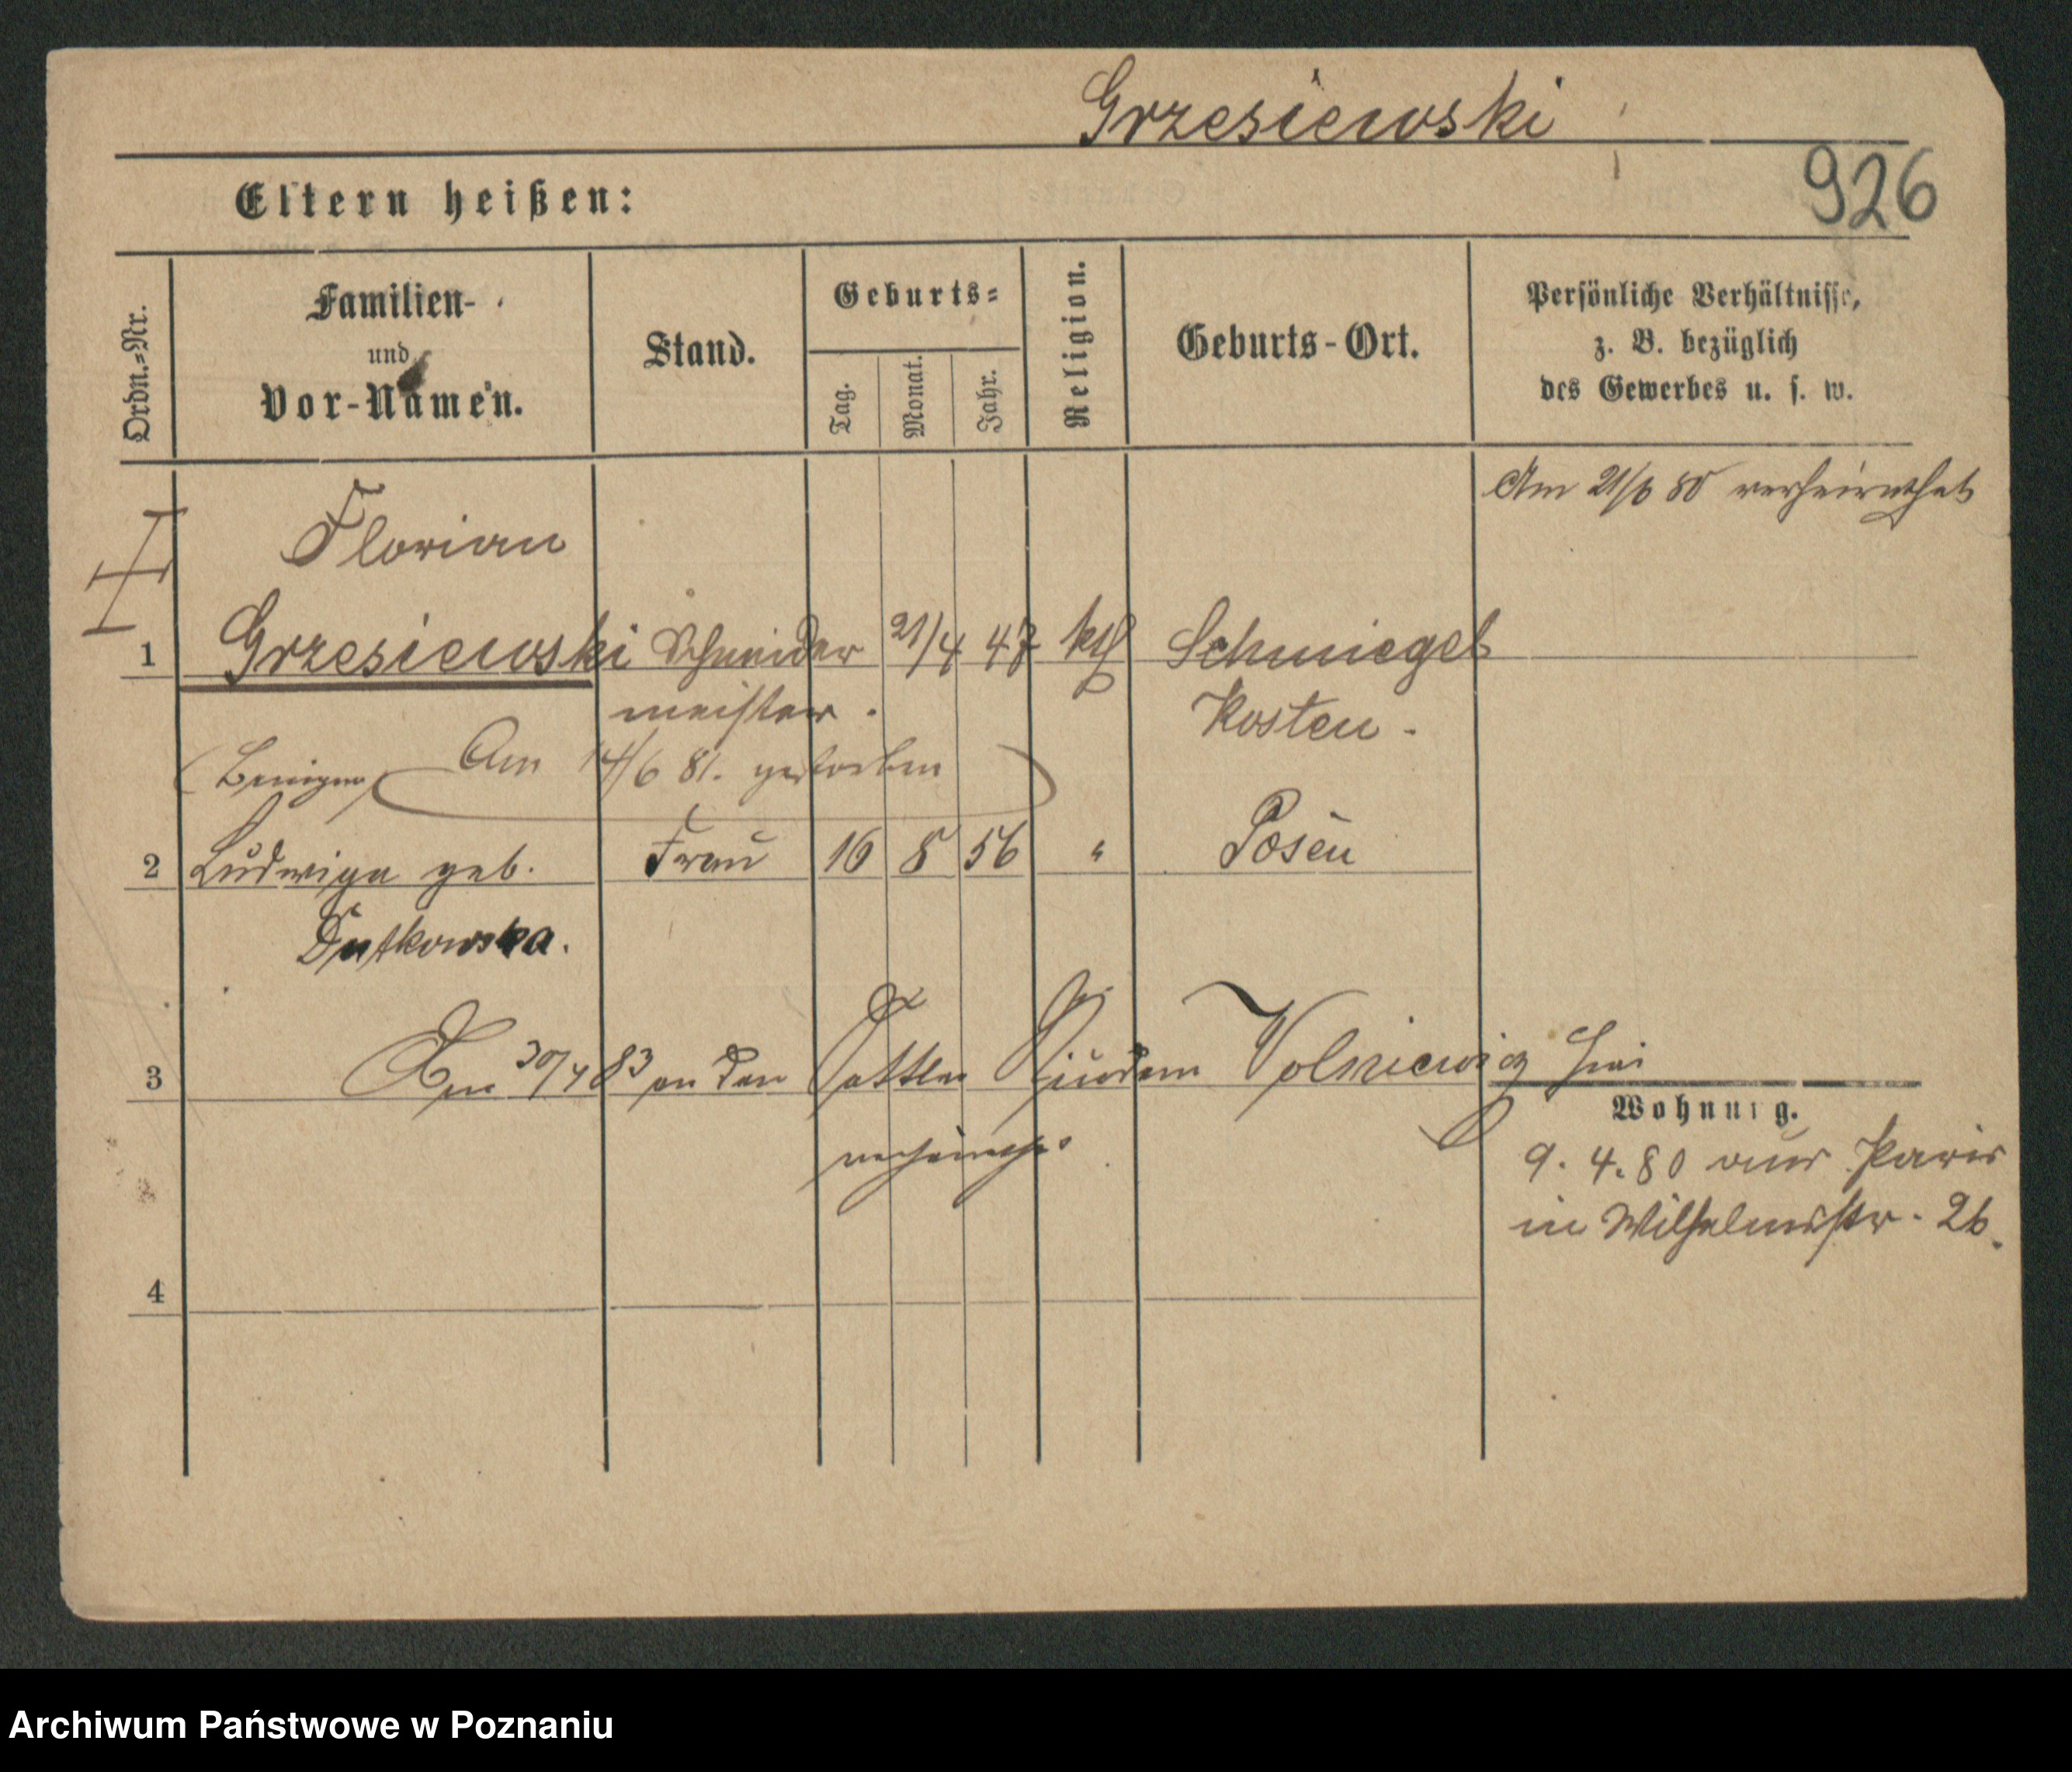 Grzesiewski
926
Eltern heißen:
Ordn.=Nr.
Familien-
und
Vor-Namen.
Stand.
Geburts=
Tag.
Monat.
Jahr.
Religion.
Geburts-Ort.
Persönliche Verhältnisse,
z. B. bezüglich
des Gewerbes u. s. w.
Am 21/6 80 verheirathet
Florian
1 Grzesiewski Schneider 21/4 47 kth Schmiegel
meister. Kosten -
Am 14/6 81. gestorben
2 Ludwiga geb. Frau 16 8 56 " Posen
Dutkowska.
3 Am 30/4 83 an den Sattler
verheirathet
Wohnung.
9. 4. 80 aus Paris
in Wilhelmsstr. 26.
4
Archiwum Państwowe w Poznaniu